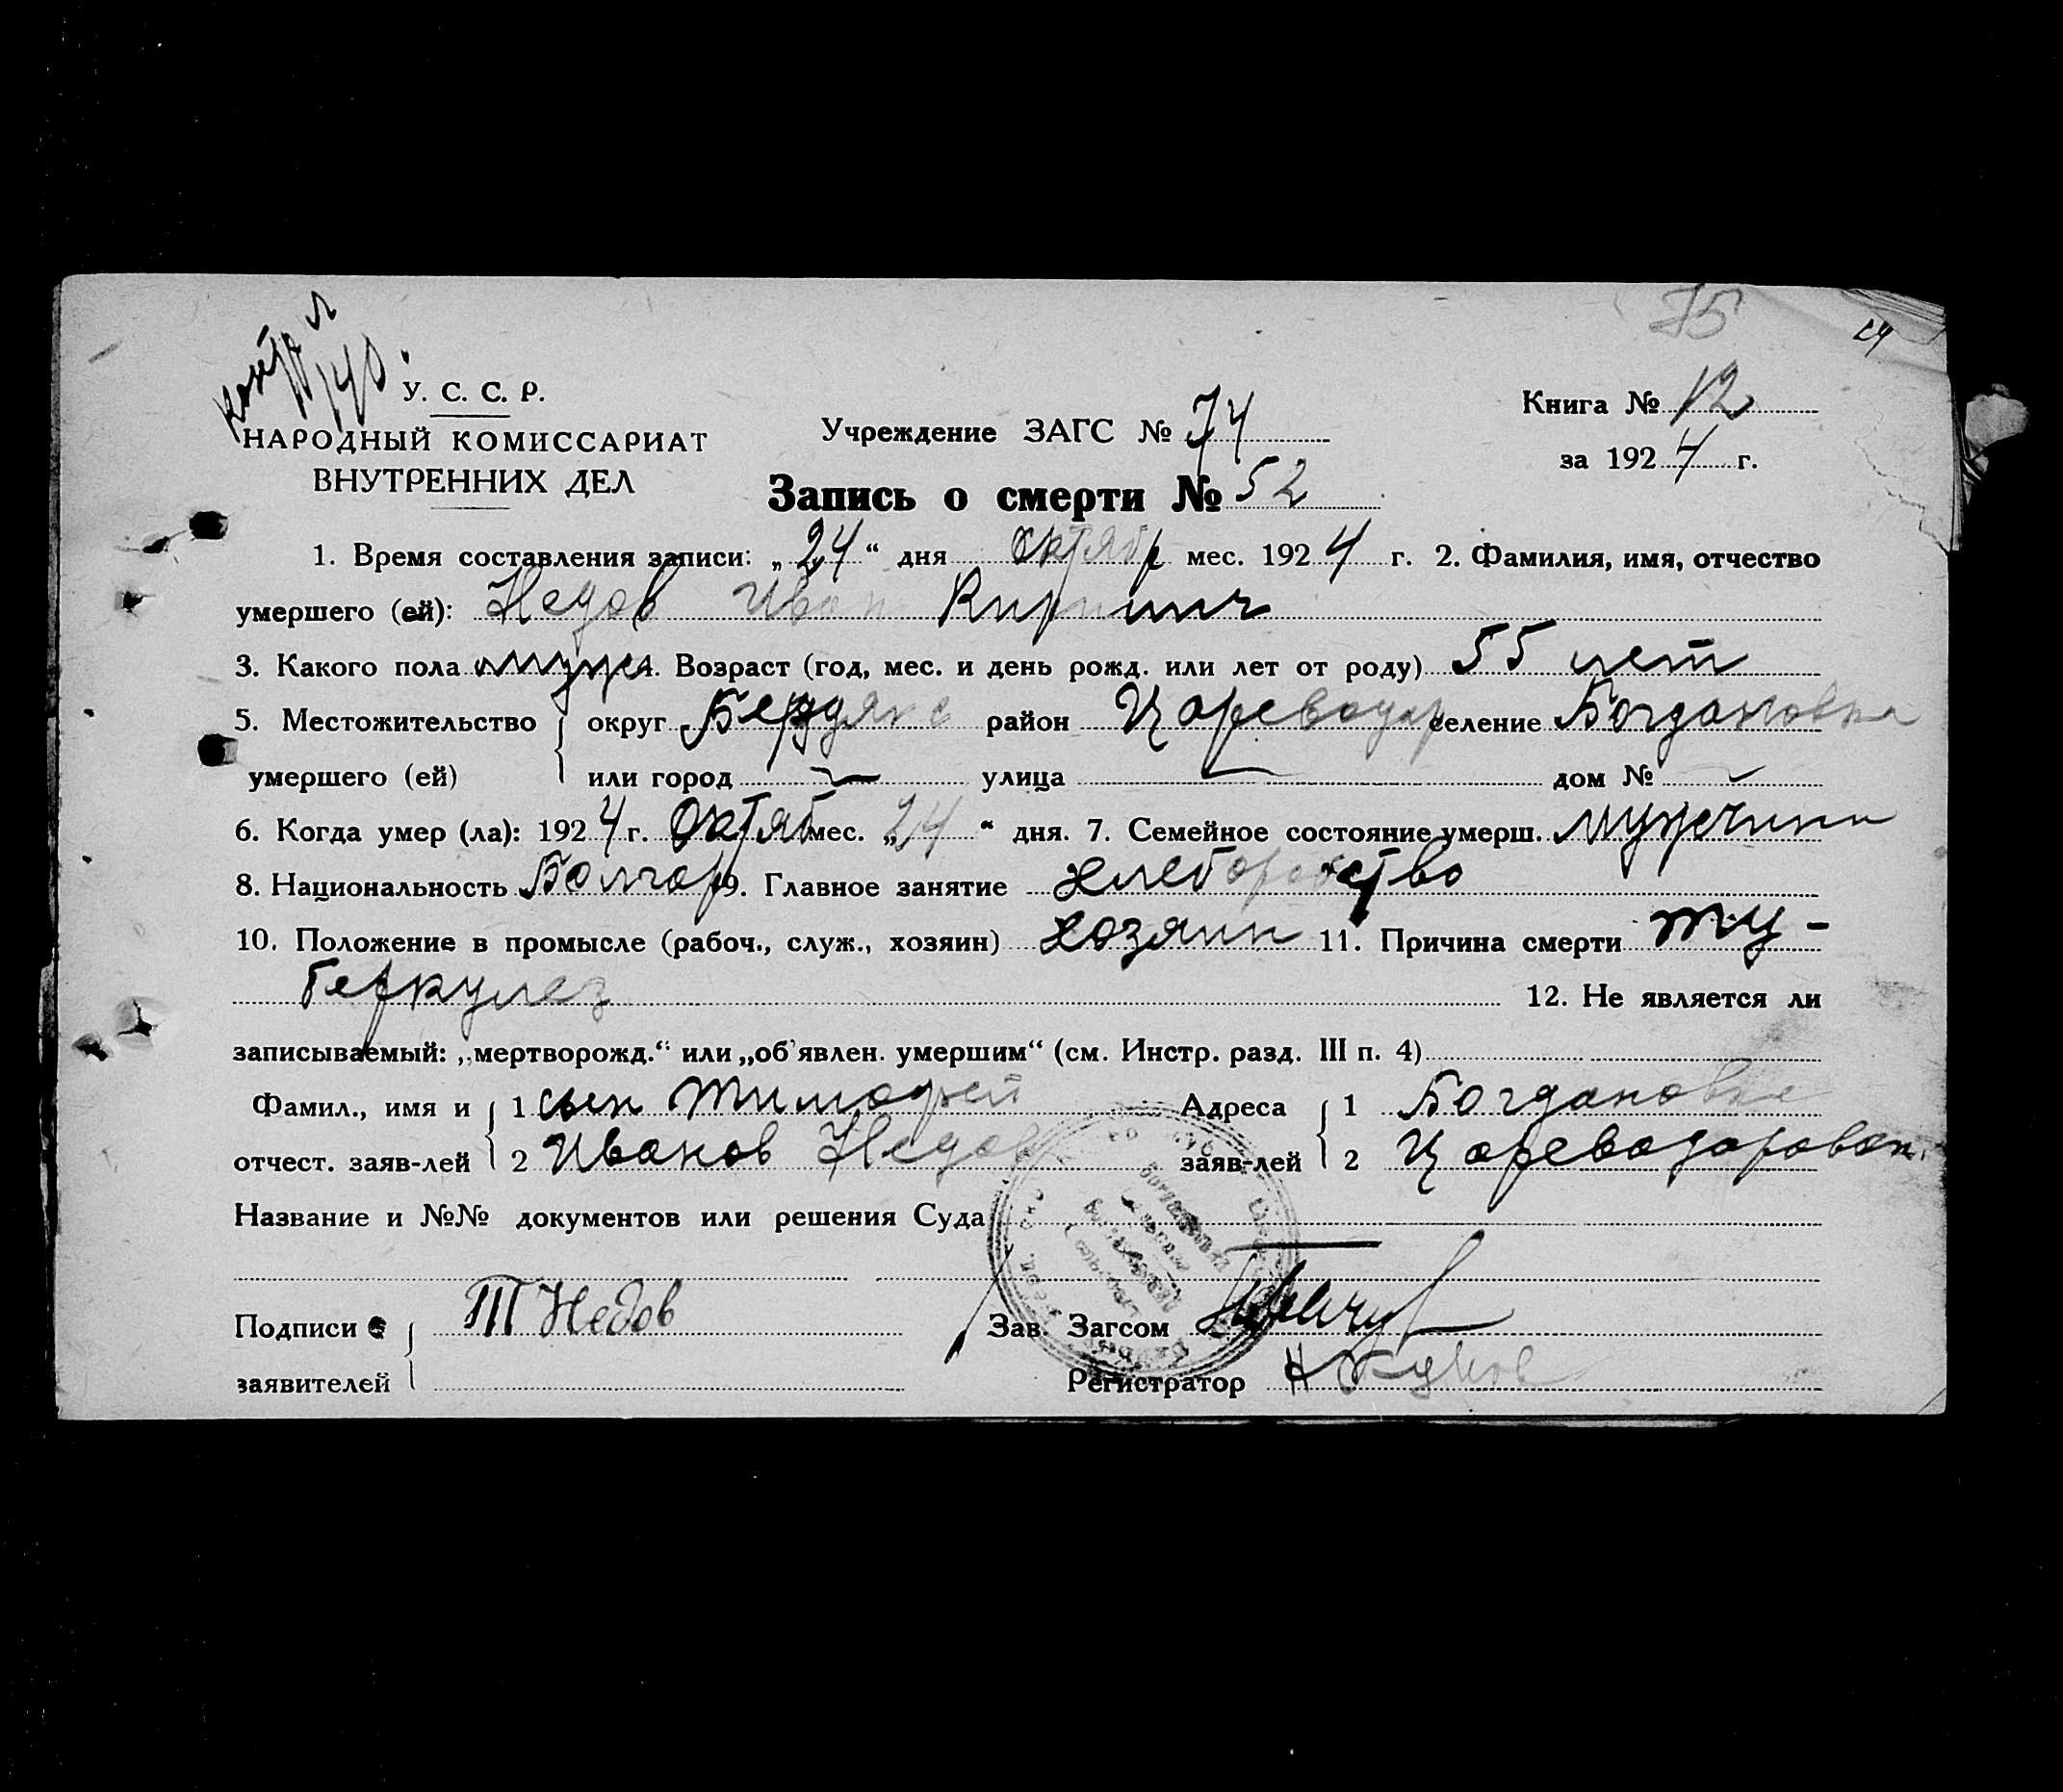 75
контр л
140.
У. С. С. Р.
НАРОДНЫЙ КОМИССАРИАТ
ВНУТРЕННИХ ДЕЛ
Учреждение ЗАГС № 74
Книга № 12
за 1924 г.
Запись о смерти № 52
1. Время составления записи: „24“ дня октябр мес. 1924 г. 2. Фамилия, имя, отчество
умершего (ей): Недов Иван
3. Какого пола муж 4. Возраст (год, мес. и день рожд. или лет от роду) 55 лет
5. Местожительство округ Бердянс район Цареводар селение Богдановка
умершего (ей) или город — улица — дом № —
6. Когда умер (ла): 1924 г. Октяб мес. „24“ дня. 7. Семейное состояние умерш. мужчина
8. Национальность Болгар 9. Главное занятие хлеборобство
10. Положение в промысле (рабоч., служ., хозяин) хозяин 11. Причина смерти ту-
беркулез 12. Не является ли
записываемый: „мертворожд.“ или „об’явлен. умершим“ (см. Инстр. разд. III п. 4)
Фамил., имя и 1 сын Тимофей Адреса 1 Богдановка
отчест. заяв-лей 2 Иванов Недов заяв-лей 2 Цареводаровск.
Название и №№ документов или решения Суда
Подписи Т Недов Зав. Загсом
заявителей Регистратор